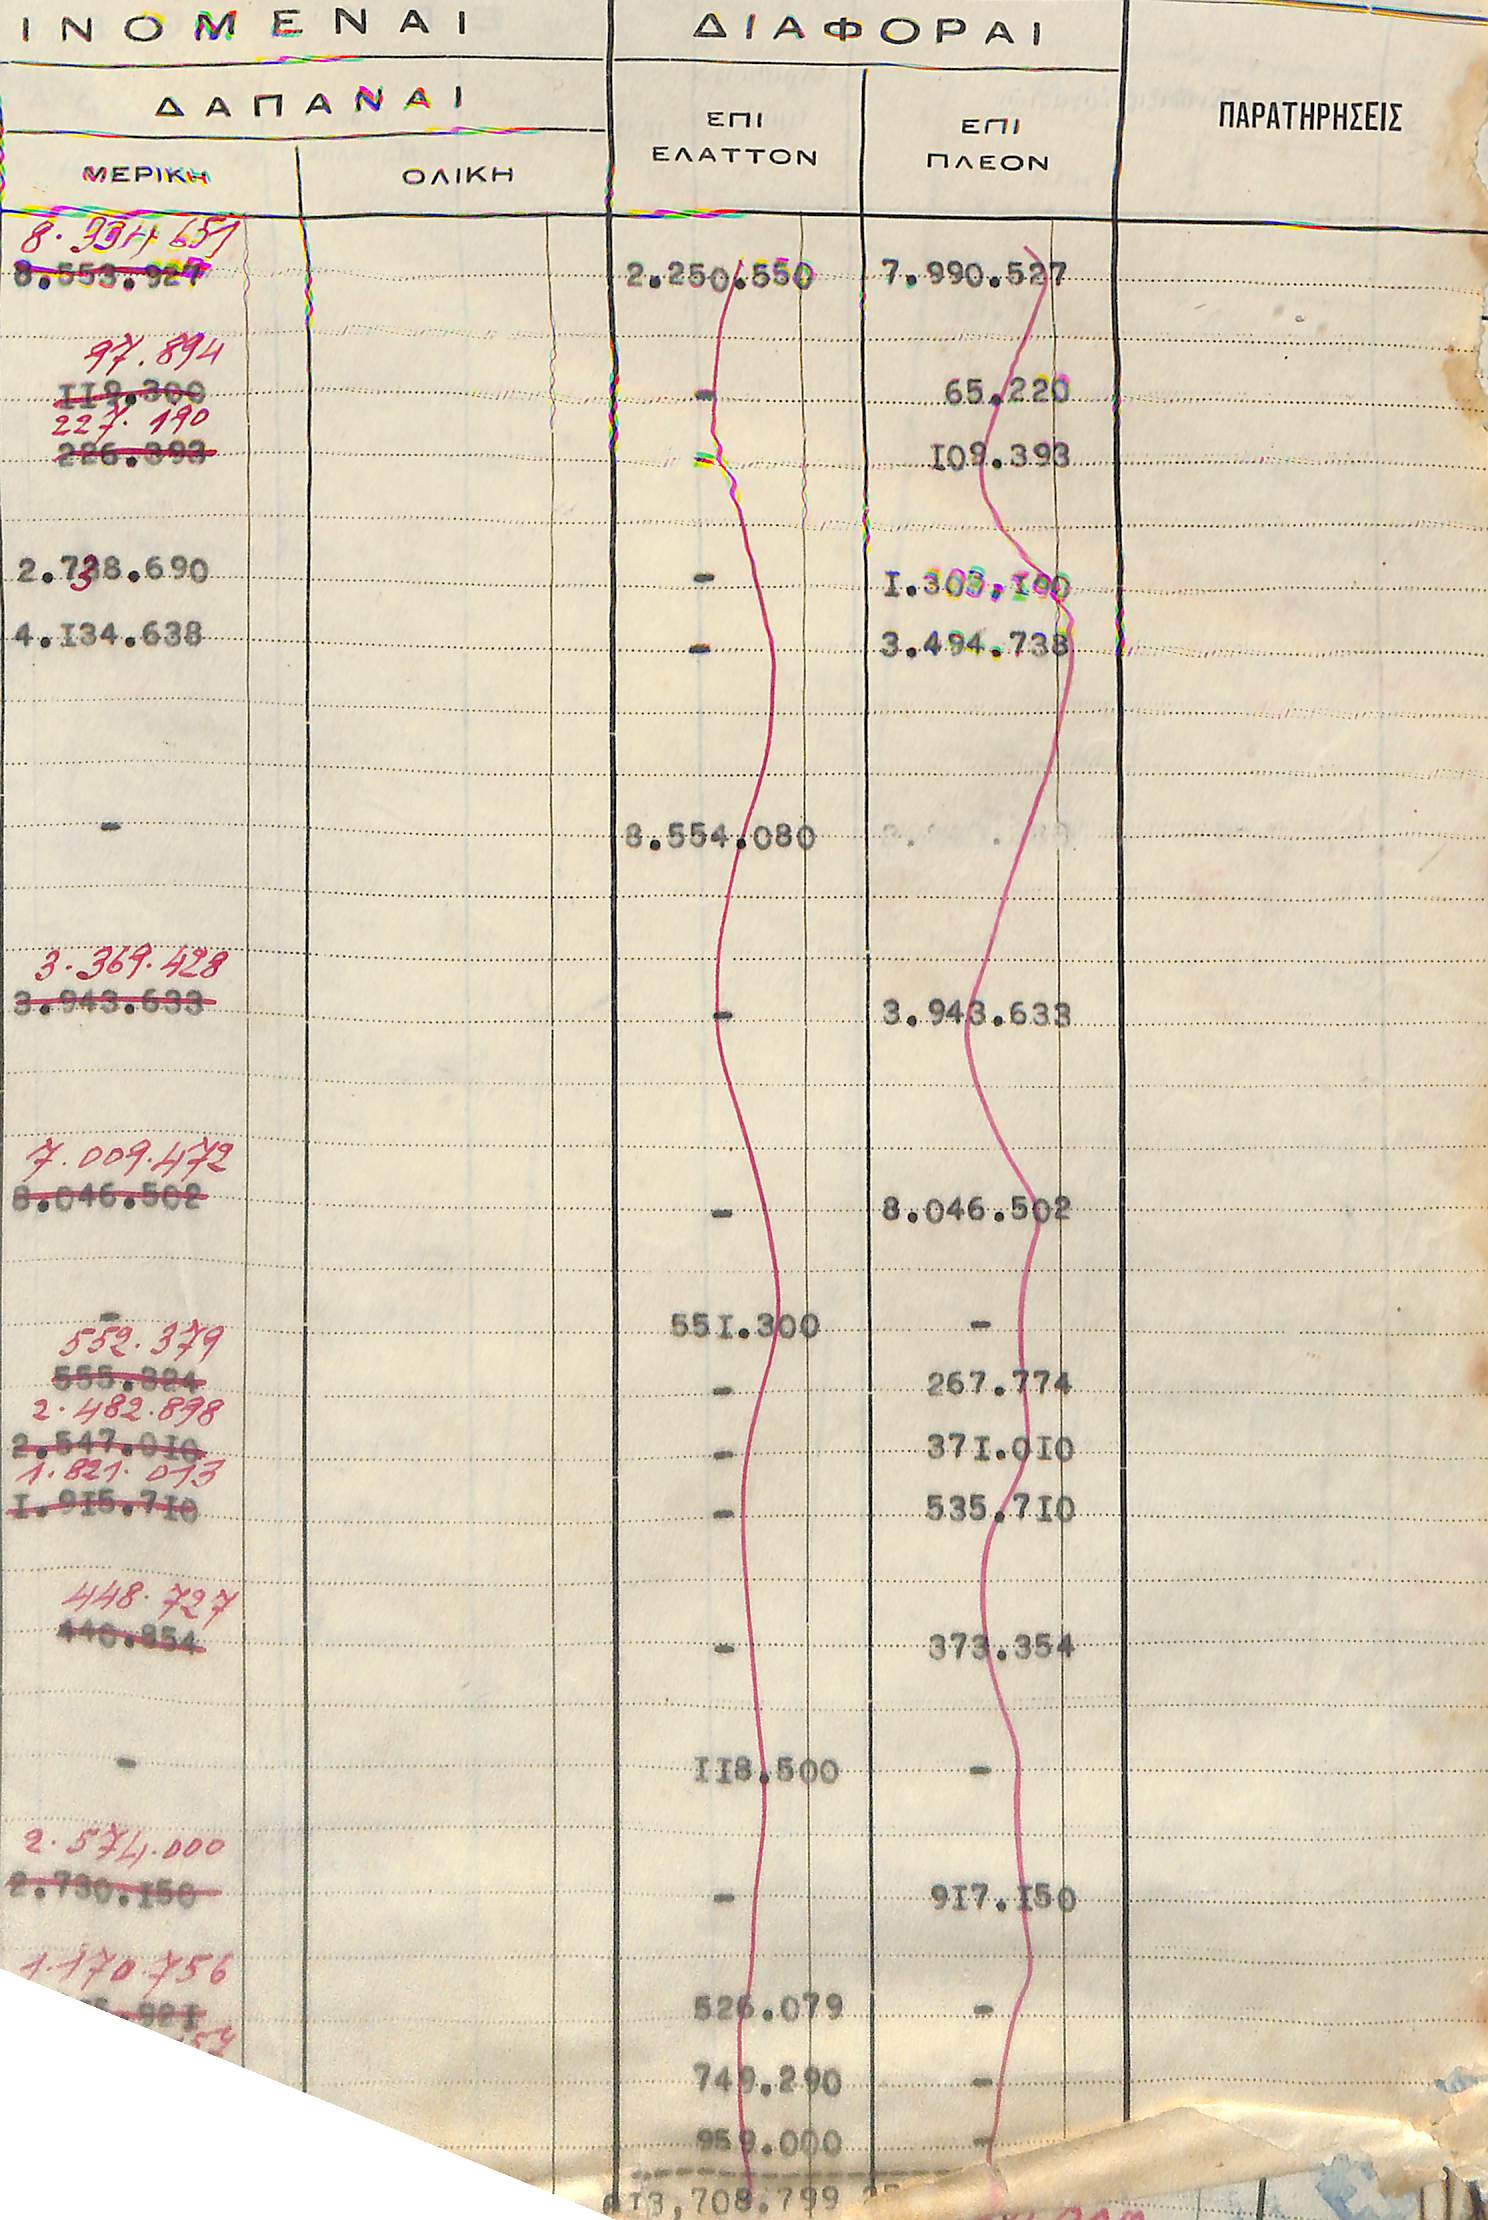 ΙΝΟΜΕΝΑΙ ΔΙΑΦΟΡΑΙ
ΔΑΠΑΝΑΙ ΕΠΙ ΕΛΑΤΤΟΝ ΕΠΙ ΠΛΕΟΝ ΠΑΡΑΤΗΡΗΣΕΙΣ
ΜΕΡΙΚΗ ΟΛΙΚΗ
8.994.651
8.553.927 2.250.550 7.990.527
97.894
119.300 - 65.220
227.190
226.393 - 109.393
2.738.690 - 1.303.190
4.134.638 - 3.494.738
- 8.554.080
3.369.428
3.943.633 - 3.943.633
7.009.472
8.046.502 - 8.046.502
- 551.300 -
552.379
555.324 - 267.774
2.482.898
2.547.010 - 371.010
1.821.013
1.915.710 - 535.710
448.727
- 373.354
- 118.500 -
2.574.000
2.730.150 - 917.150
1.170.756
.921 526.079 -
749.290 -
959.000 -
13,708.799